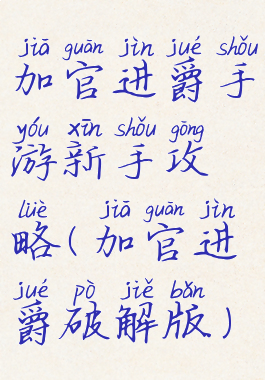 jiā guān jìn jué shǒu
加官进爵手
yóu xīn shǒu gōng
游新手攻
lüè jiā guān jìn
略(加官进
jué pò jiě bǎn
爵破解版)